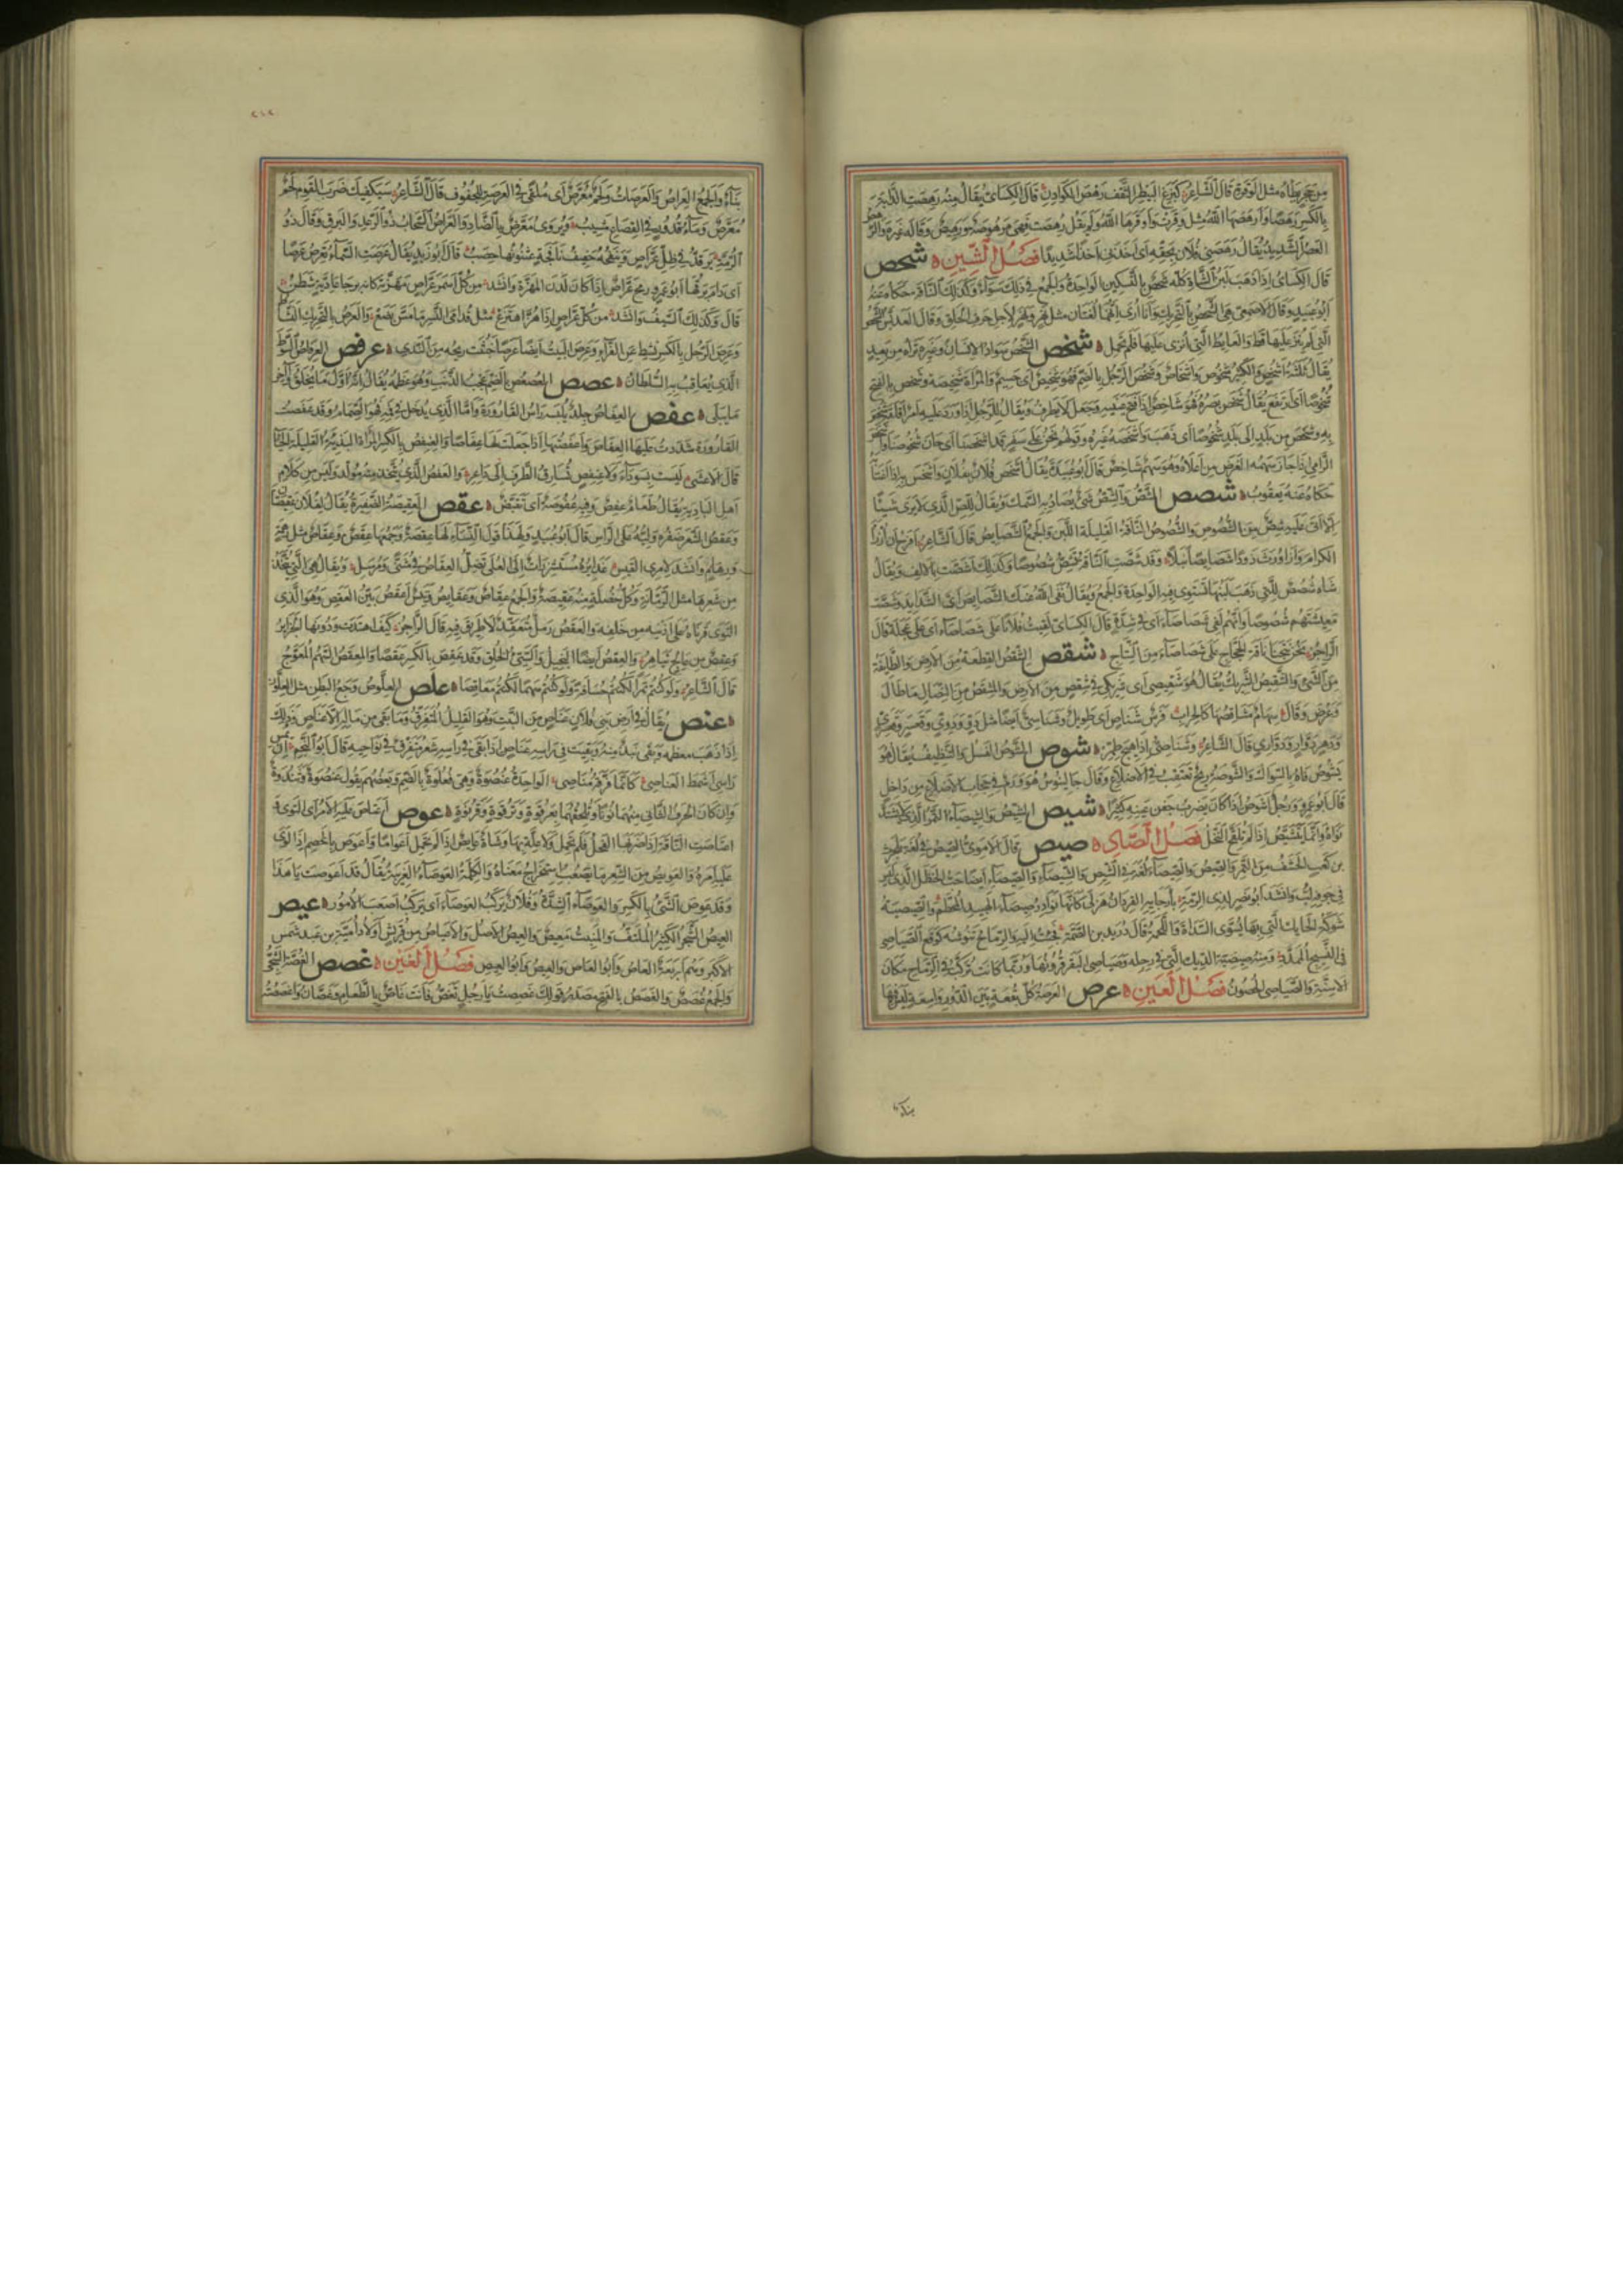 من حجر يطأه مثل الوقرة قال الشاعر كبزغ البيطر الثقف رهص الكوادن قال الكسائي يقال منه رهصت الدابة
بالكسر رهصا وأرهصها الله مثل وقرت وأوقرها الله ولم يقل رهصت فهي مرهوصة ورهيص وقال غيره والرهص
العصر الشديد يقال رهصني فلان بحقه أي أخذني أخذا شديدا فصل الشين شحص
قال الكسائي إذا ذهب لبن الشاة كله شحص بالتسكين الواحدة والجمع في ذلك سواء وكذلك الناقة حكاه عنه
أبو عبيد وقال الأصمعي هي الشحص بالتحريك وأنا أرى أنهما لغتان مثل نهر ونهر لأجل حرف الحلق وقال العدبس الشحص
التي لم ينز عليها قط والعائط التي أنزي عليها فلم تحمل شخص الشخص سواد الإنسان وغيره تراه من بعيد
يقال ثلثة أشخص والكثير شخوص وأشخاص وشخص الرجل بالضم فهو شخيص أي جسيم والمرأة شخيصة وشخص بالفتح
شخوصا أي ارتفع يقال شخص بصره فهو شاخص إذا فتح عينيه وجعل لا يطرف ويقال للرجل إذا ورد عليه أمر أقلقه شخص
به وشخص من بلد إلى بلد شخوصا أي ذهب وأشخصه غيره وقولهم نحن على سفر قد أشخصنا أي حان شخوصنا وأشخص
الرامي إذا جاز سهمه الغرض من أعلاه وهو سهم شاخص قال أبو عبيدة يقال أشخص فلان بفلان وأشخس به إذا اغتابه
حكاه عنه يعقوب شصص الشص والشص شيء يصاد به السمك ويقال للص الذي لا يرى شيئا
إلا أتى عليه شص من الشصوص والشصوص الناقة القليلة اللبن والجمع الشصائص قال الشاعر أفرح أن أرزأ
الكرام وأن أورث ذودا شصائصا نبلا وقد شصت الناقة تشص شصوصا وكذلك أشصت بالألف ويقال
شاة شصص للتي ذهب لبنها يستوي فيه الواحدة والجمع ويقال نفى الله عنك الشصائص أي الشدائد وشصت
معيشتهم شصوصا وإنهم لفي شصاصاء أي في شدة قال الكسائي لقيت فلانا على شصاصاء أي على عجلة قال
الراجز نحن نتجنا ناقة الحجاج على شصاصاء من النتاج شقص الشقص القطعة من الأرض والطائفة
من الشيء والشقيص الشريك يقال هو شقيصي أي شريكي في شقص من الأرض والمشقص من النصال ما طال
وعرض وقال سهام مشاقصها كالحراب فرس شناص أي طويل وشناصي أيضا مثل دو ودوي وقعسر وقعسري
ودهر دوار ودواري قال الشاعر وشناصي إذا هيج طمر شوص الشوص الغسل والتنظيف يقال هو
يشوص فاه بالسواك والشوصة ريح تعتقب في الأضلاع وقال جالينوس هو ورم في حجاب الأضلاع من داخل
قال أبو عمرو ورجل أشوص إذا كان يضرب جفن عينه كثيرا شيص الشيص والشيصاء التمر الذي لا يشتد
نواه وإنما يتشيص إذا لم تلقح النخل فصل الصاد صيص قال الأموي الصيص في لغة بلحرث
بن كعب الحشف من التمر والصيص والصيصاء لغة في الشيص والشيصاء والصيصاء أيضا حب الحنظل الذي ليس
في جوفه لب وأنشد أبو نصر لذي الرمة بأرجائه القردان هزلى كأنها نوادر صيصاء الهبيد المحطم والصيصية
شوكة الحائك التي بها يسوي السداة واللحمة قال دريد بن الصمة فجئت إليه والرماح تنوشه كوقع الصياصي
في النسيج الممدد ومنه صيصية الديك التي في رجله وصياصي البقر قرونها وربما كانت تركب في الرماح مكان
الأسنة والصياصي الحصون فصل العين عرص العرصة كل بقعة بين الدور واسعة ليس فيها
بناء
٢١٢
بناء والجمع العراص والعرصات ولحم معرص أي ملقى في العرصة للجفوف قال الشاعر سيكفيك صرب القوم لحم
معرص وماء قدور في القصاع مشيب ويروى معرض بالضاد والعراص السحاب ذو الرعد والبرق وقال ذو
الرمة يرقد في ظل عراص ويتبعه حفيف نافجة عثنونها حصب قال أبو زيد يقال عرصت السماء تعرص عرصا
أي دام برقها أبو عمرو رمح عراص إذا كان لدن المهزة وأنشد من كل أسمر عراص مهزته كأنه برجا عادية شطن
قال وكذلك السيف وأنشد من كل عراص إذا هز اهتزع مثل قدامى النسر ما مس بضع والعرص بالتحريك النشاط
وعرص الرجل بالكسر نشط عن الفراء وعرص البيت أيضا عرصا خبثت ريحه من الندى عرفص العرفاص السوط
الذي يعاقب به السلطان عصص العصعص بالضم عجب الذنب وهو عظمه يقال إنه أول ما يخلق وآخر
ما يبلى عفص العفاص جلد يلبسه رأس القارورة وأما الذي يدخل في فيه فهو الصمام وقد عفصت
القارورة شددت عليها العفاص وأعفصتها إذا جعلت لها عفاصا والعنفص بالكسر المرأة البذيئة القليلة الحياء
قال الأعشى ليست بسوداء ولا عنفص تسارق الطرف إلى داعر والعفص الذي يتخذ منه مولد وليس من كلام
أهل البادية يقال طعام عفص وفيه عفوصة أي تقبض عقص العقيصة الضفيرة يقال لفلان عقيصتان
وعقص الشعر ضفره وليه على الرأس قال أبو عبيد ولهذا قيل النساء لها عقصة وجمعها عقص وعقاص مثل رهمة
ورهام وأنشد لامرئ القيس غدائره مستشزرات إلى العلى تضل العقاص في مثنى ومرسل ويقال هي التي تتخذ
من شعرها مثل الرمانة وكل خصلة منه عقيصة والجمع عقاص وعقائص وتيس أعقص بين العقص وهو الذي
التوى قرناه على أذنيه من خلفه والعقص رمل متعقد لا طريق فيه قال الراجز كيف اهتدت ودونها الجزائر
وعقص من عالج تياهر والعقص أيضا البخيل والسيئ الخلق وقد عقص بالكسر عقصا والمعقص السهم المعوج
قال الشاعر ولو كنتم تمرا لكنتم حسافة ولو كنتم سهما لكنتم معاقصا علص العلوص وجع البطن مثل العلوز
عنص يقال في أرض بني فلان عناص من النبت وهو القليل المتفرق وما بقي من ماله إلا عناص وذلك
إذا ذهب معظمه وبقي نبذ منه وبقيت في رأسه عناص إذا بقي في رأسه شعر متفرق في نواحيه قال أبو النجم إن يمس
رأسي أشمط العناصي كأنما فرقه مناصي الواحدة عنصوة وهي فعلوة بالضم وبعضهم يقول عنصوة وثندوة
وإن كان الحرف الثاني منهما نونا ويلحقهما بعرقوة وترقوة وقرنوة عوص اعتاص عليه الأمر أي التوى و
اعتاصت الناقة إذا ضربها الفحل فلم تحمل ولا علة بها وشاة عائص إذا لم تحمل أعواما وأعوص بالخصم إذا لوى
عليه أمره والعويص من الشعر ما يصعب استخراج معناه والكلمة العوصاء الغريبة يقال قد أعوصت يا هذا
وقد عوص الشيء بالكسر والعوصاء الشدة وفلان يركب العوصاء أي يركب أصعب الأمور عيص
العيص الشجر الكثير الملتف والمنبت معيص والعيص الأصل والأعياص من قريش أولاد أمية بن عبد شمس
الأكبر وهم أربعة العاص وأبو العاص والعيص وأبو العيص فصل الغين غصص الغصة الشجى
والجمع غصص والغصص بالفتح مصدر قولك غصصت يا رجل تغص فأنت غاص بالطعام وغصان وأغصصته